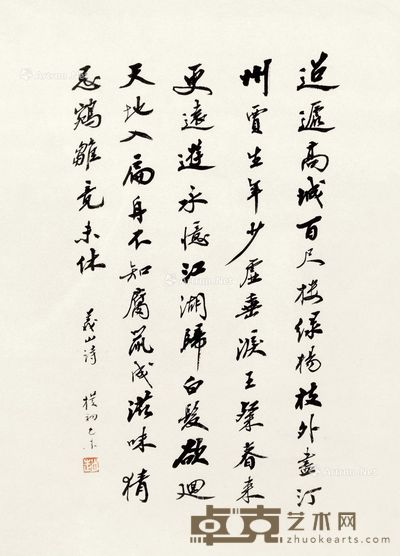 迢遞高城百尺楼绿楊枝外盡汀
州賈生年少虚垂淚王粲春来
更遠遊永憶江湖歸白髮欲迴
天地入扁舟不知腐鼠成滋味猜
忌鵷雛竟未休
義山詩 樸初
卓克艺术网
http://www.zhuokearts.com